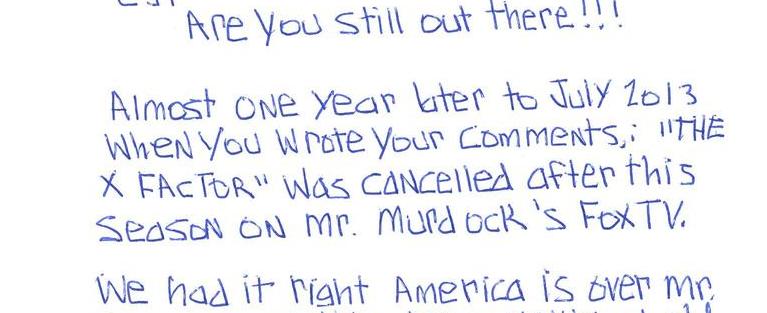 Are you still out there!!!
Almost ONE year later to July 2013
WheN you Wrote your Comments,; "THE
X FACTOR" Was CANCelled after this
SeasoN ON Mr. Murdock's FoxTV.
We had it right America is over Mr.